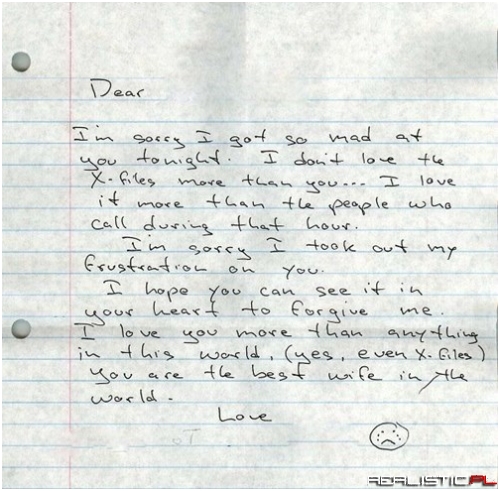 Dear
I'm sorry I got so mad at
you tonight. I don't love the
X-files more than you... I love
it more than the people who
call during that hour.
I'm sorry I took out my
frustration on you.
I hope you can see it in
your heart to forgive me.
I love you more than anything
in this world, (yes, even X-files)
you are the best wife in the
world.
Love
REALISTIC.PL